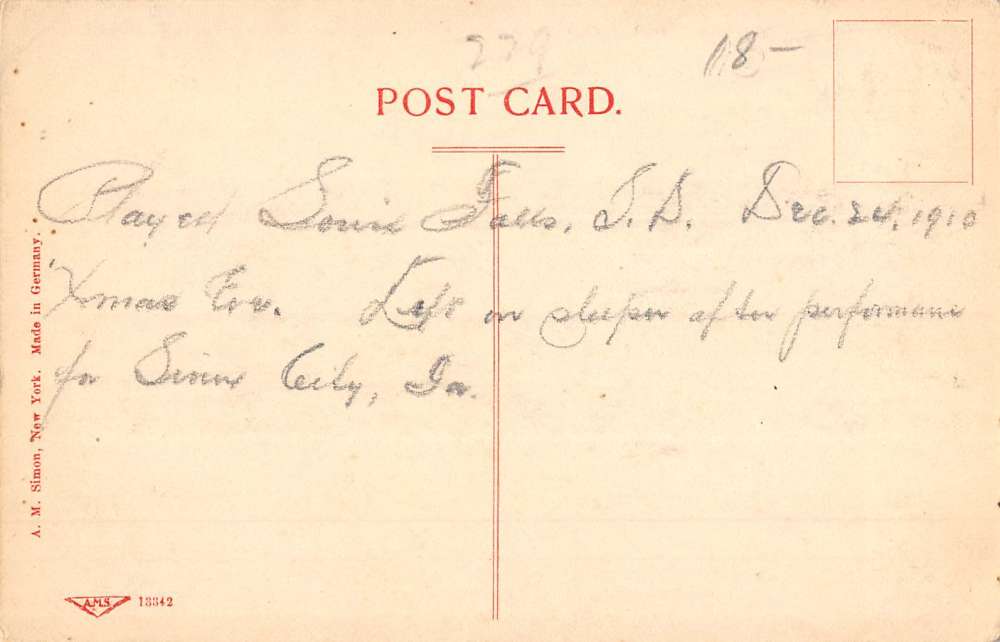 279
118-
POST CARD.
Played Souix Falls, S. D. Dec. 24, 1910
Xmas Eve. Left on sleeper after performance
for Sioux City, Ia.
A. M. Simon, New York. Made in Germany.
A.M.S. 18842